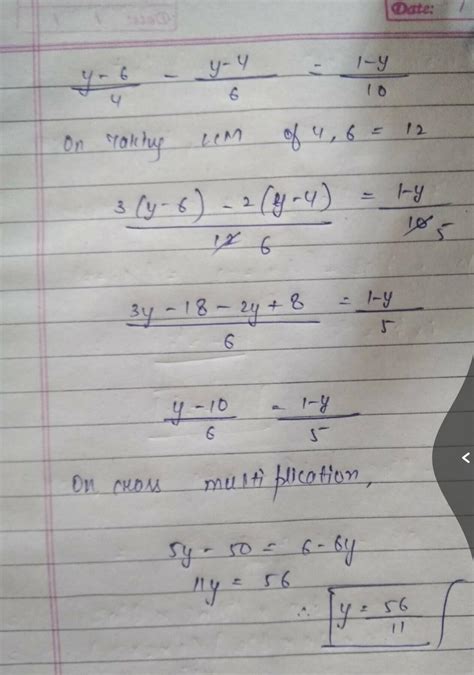 Date: 1
Date: 1 1
y-6/4 - y-4/6 = 1-y/10
On taking LCM of 4, 6 = 12
3(y-6) - 2(y-4)/12 6 = 1-y/10 5
3y - 18 - 2y + 8/6 = 1-y/5
y - 10/6 = 1-y/5
On cross multiplication,
5y - 50 = 6 - 6y
11y = 56
∴ y = 56/11